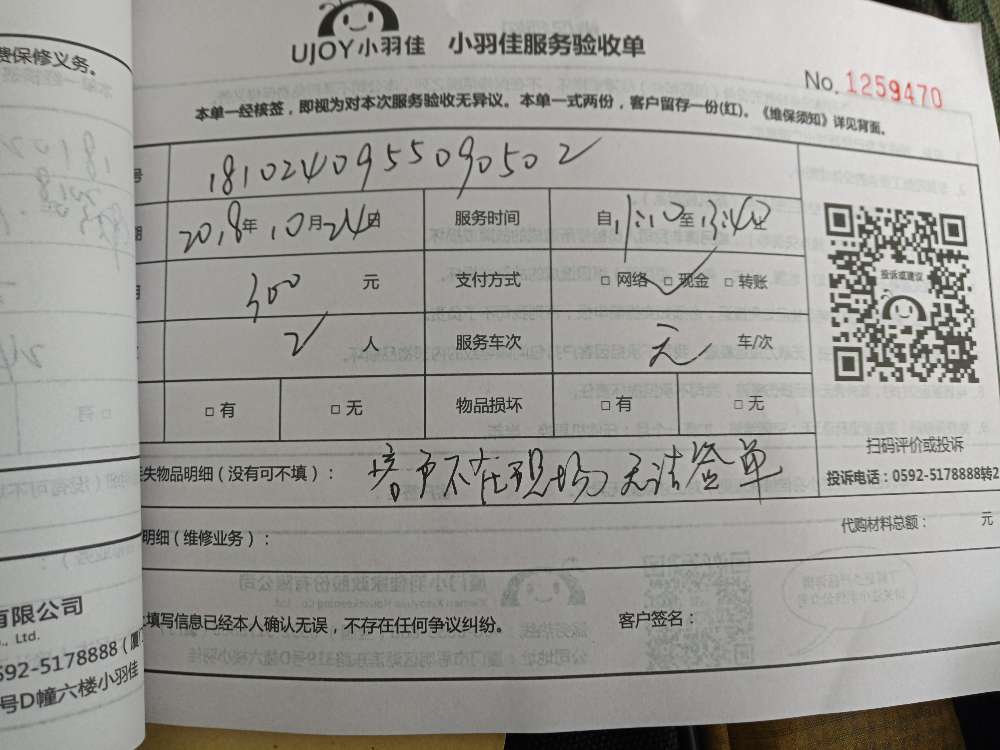 费保修义务。
UJOY小羽佳 小羽佳服务验收单
No. 1259470
本单一经核签，即视为对本次服务验收无异议。本单一式两份，客户留存一份(红)。《维保须知》详见背面。
号 181024095509050 2
期 2018年10月24日 服务时间 自 至13:40止
300 元 支付方式 □ 网络 □ 现金 □ 转账
投诉或建议
2 人 服务车次 无 车/次
□ 有 □ 无 物品损坏 □ 有 □ 无
扫码评价或投诉
失物品明细（没有可不填）： 客户不在现场 无法签单
投诉电话：0592-5178888转2
明细（维修业务）： 代购材料总额： 元
有限公司
., Ltd.
填写信息已经本人确认无误，不存在任何争议纠纷。 客户签名：
592-5178888（厦
号D幢六楼小羽佳